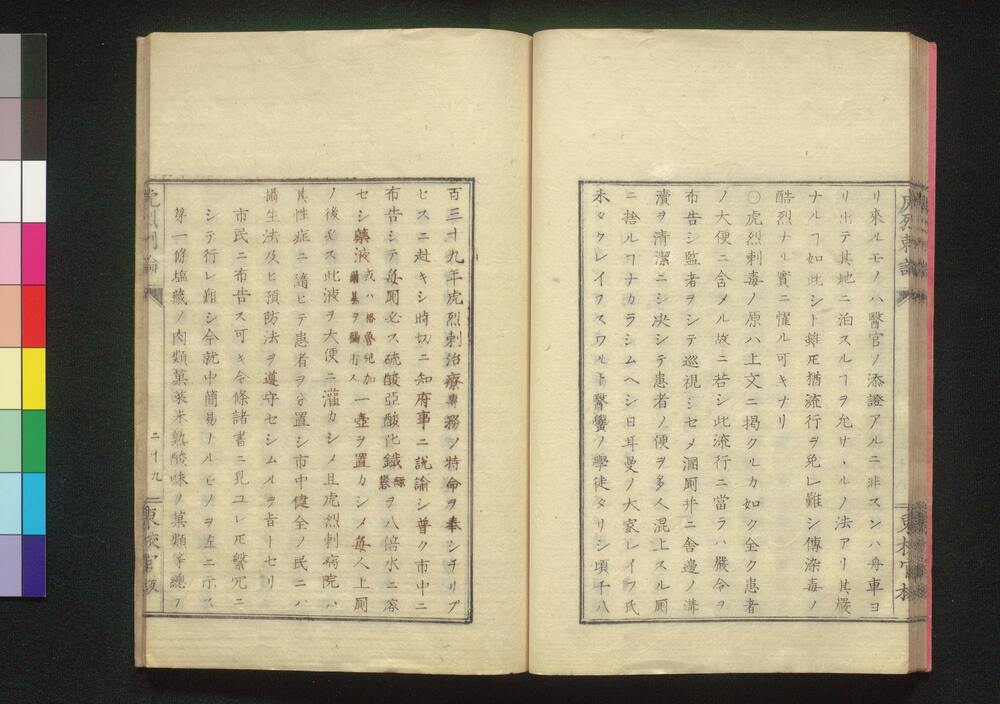 リ來ルモノハ醫官ノ添證アルニ非スンハ舟車ヨ
リ出テ其地ニ泊スルヿヲ允サヽルノ法アリ其嚴
ナルヿ如此シト雖𪜈猶流行ヲ免レ難シ傳染毒ノ
酷烈ナル實ニ懼ル可キナリ
〇虎烈刺毒ノ原ハ上文ニ掲クルカ如ク全ク患者
ノ大便ニ含メル故ニ若シ此流行ニ當ラハ嚴令ヲ
布告シ監者ヲシテ巡視シセメ溷厠幷ニ舎邊ノ溝
瀆ヲ清潔ニシ决シテ患者ノ便ヲ多人混上スル厠
ニ捨ルヿナカラシムヘシ日耳曼ノ大家レイフ氏
未タクレイフスワルト醫黌ノ學徒タリシ頃千八
百三十九年虎烈刺治療專務ノ特命ヲ奉シチリプ
ヒスニ赴キシ時切ニ知府事ニ說諭シ普ク市中ニ
布告シテ每厠必ス硫酸亞酸化鐵綠礬ヲ八倍水ニ溶
セシ藥液或ハ格魯兒加爾基ヲ騸行ス一壺ヲ置カシメ每人上厠
ノ後必ス此液ヲ大便ニ灌カシメ且虎烈刺病院ハ
其性症ニ隨ヒテ患者ヲ分置シ市中健全ノ民ニハ
攝生法及ヒ預防法ヲ遵守セシムルヲ旨トセリ
市民ニ布告ス可キ令條諸書ニ見ユレ𪜈繁冗ニ
シテ行レ難シ今就中簡易ナルモノヲ左ニ示ス
第一 鹽藏ノ肉類菓菜未熟酸味ノ菓類等總テ
二十九